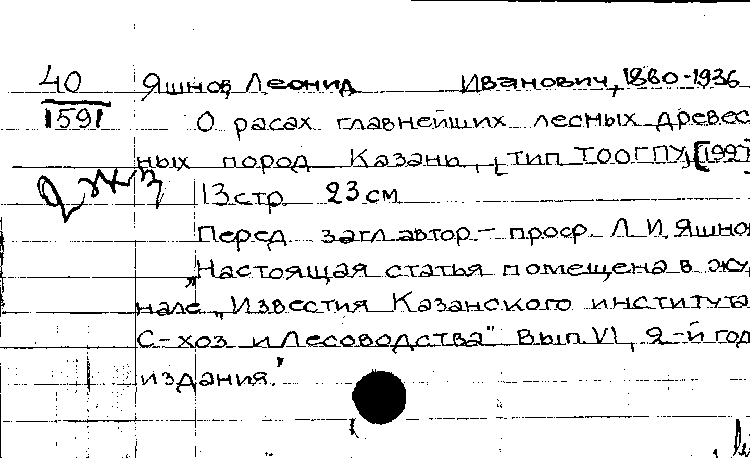 40
1591
Яшнов, Леонид Иванович, 1860-1936
О расах главнейших лесных древес
ных пород Казань, [тип ТООГПУ]
13 стр. 23 см
Перед загл. автор.- Л. И. Яшнов
"Настоящая статья помещена в жур
нале „Известия Казанского института
С-хоз и Лесоводства" Вып. VI, 2-й год
издания."